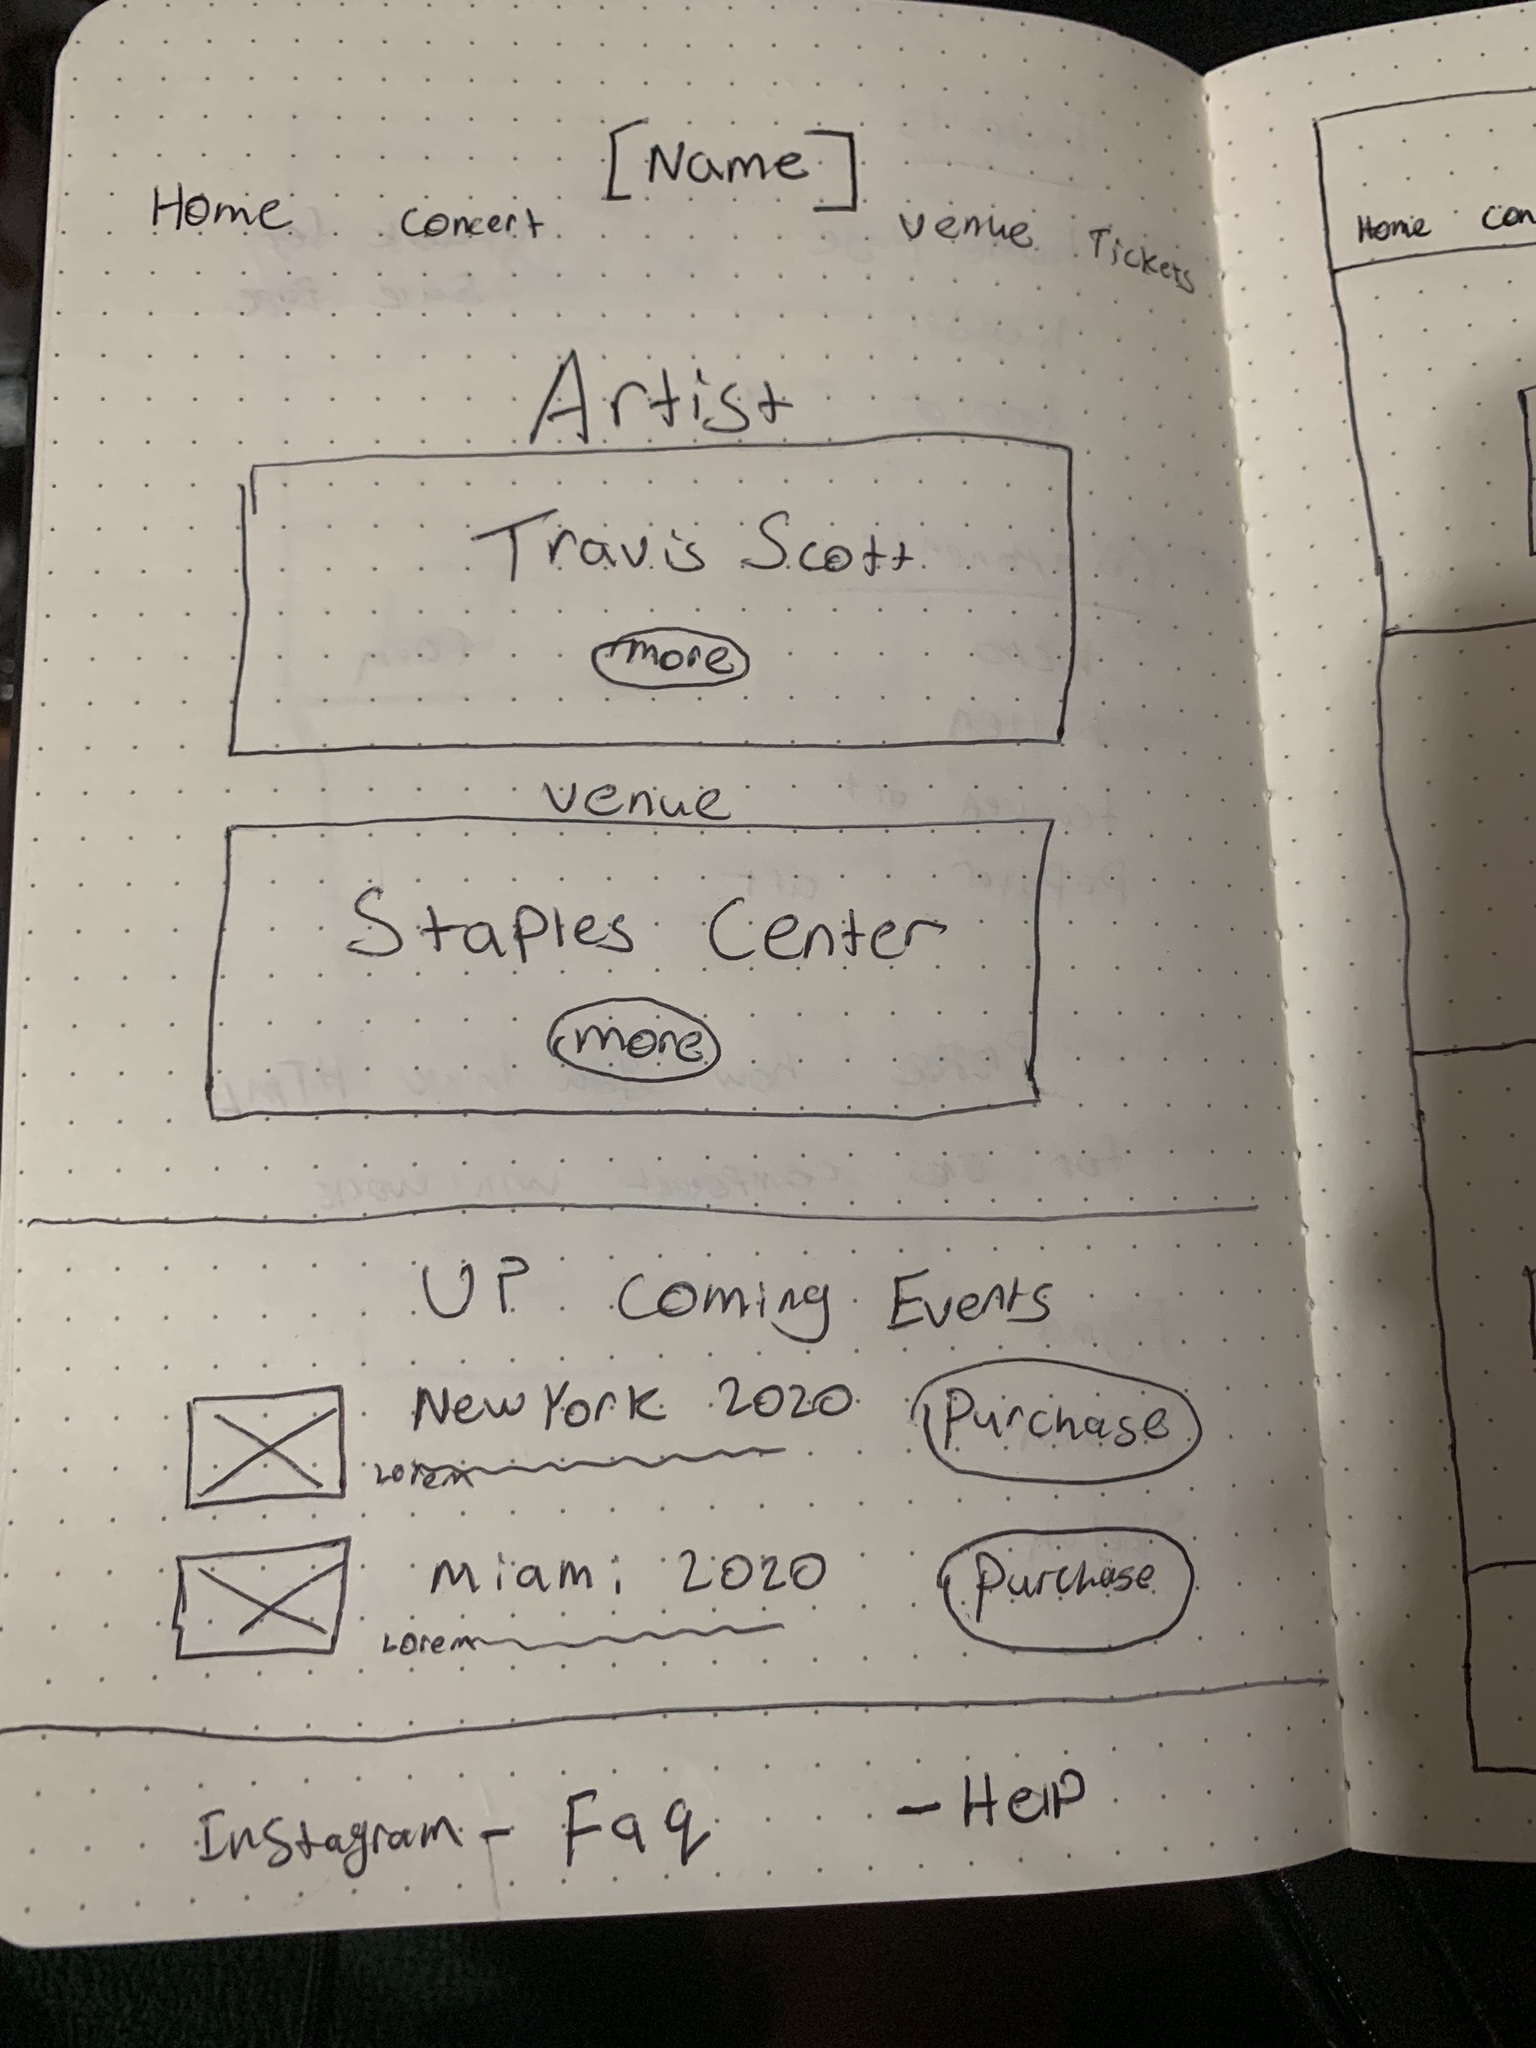 [Name]
Home concert venue Tickets
Artist
Travis Scott
more
venue
Staples Center
more
UP coming Events
New York 2020 Purchase
Lorem
Miami 2020 Purchase
Lorem
Instagram - Faq - Help
Home Con